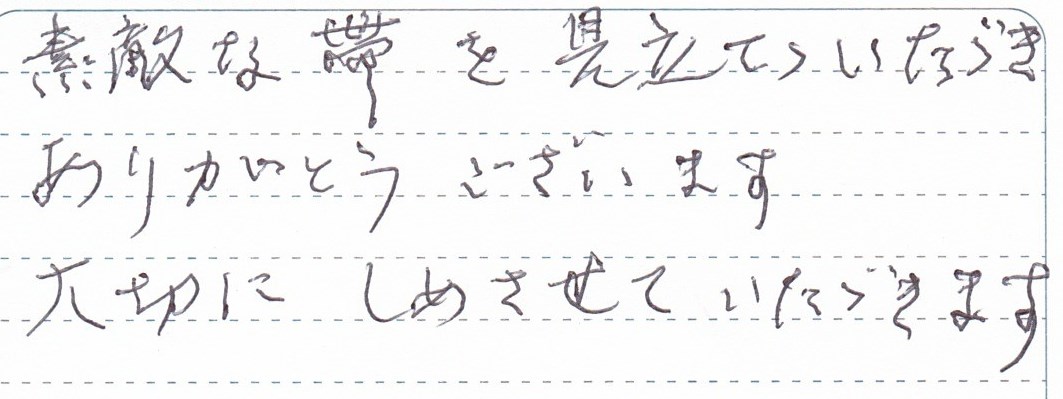 素敵な帯を見立てていただき
ありがとうございます
大切にしめさせていただきます